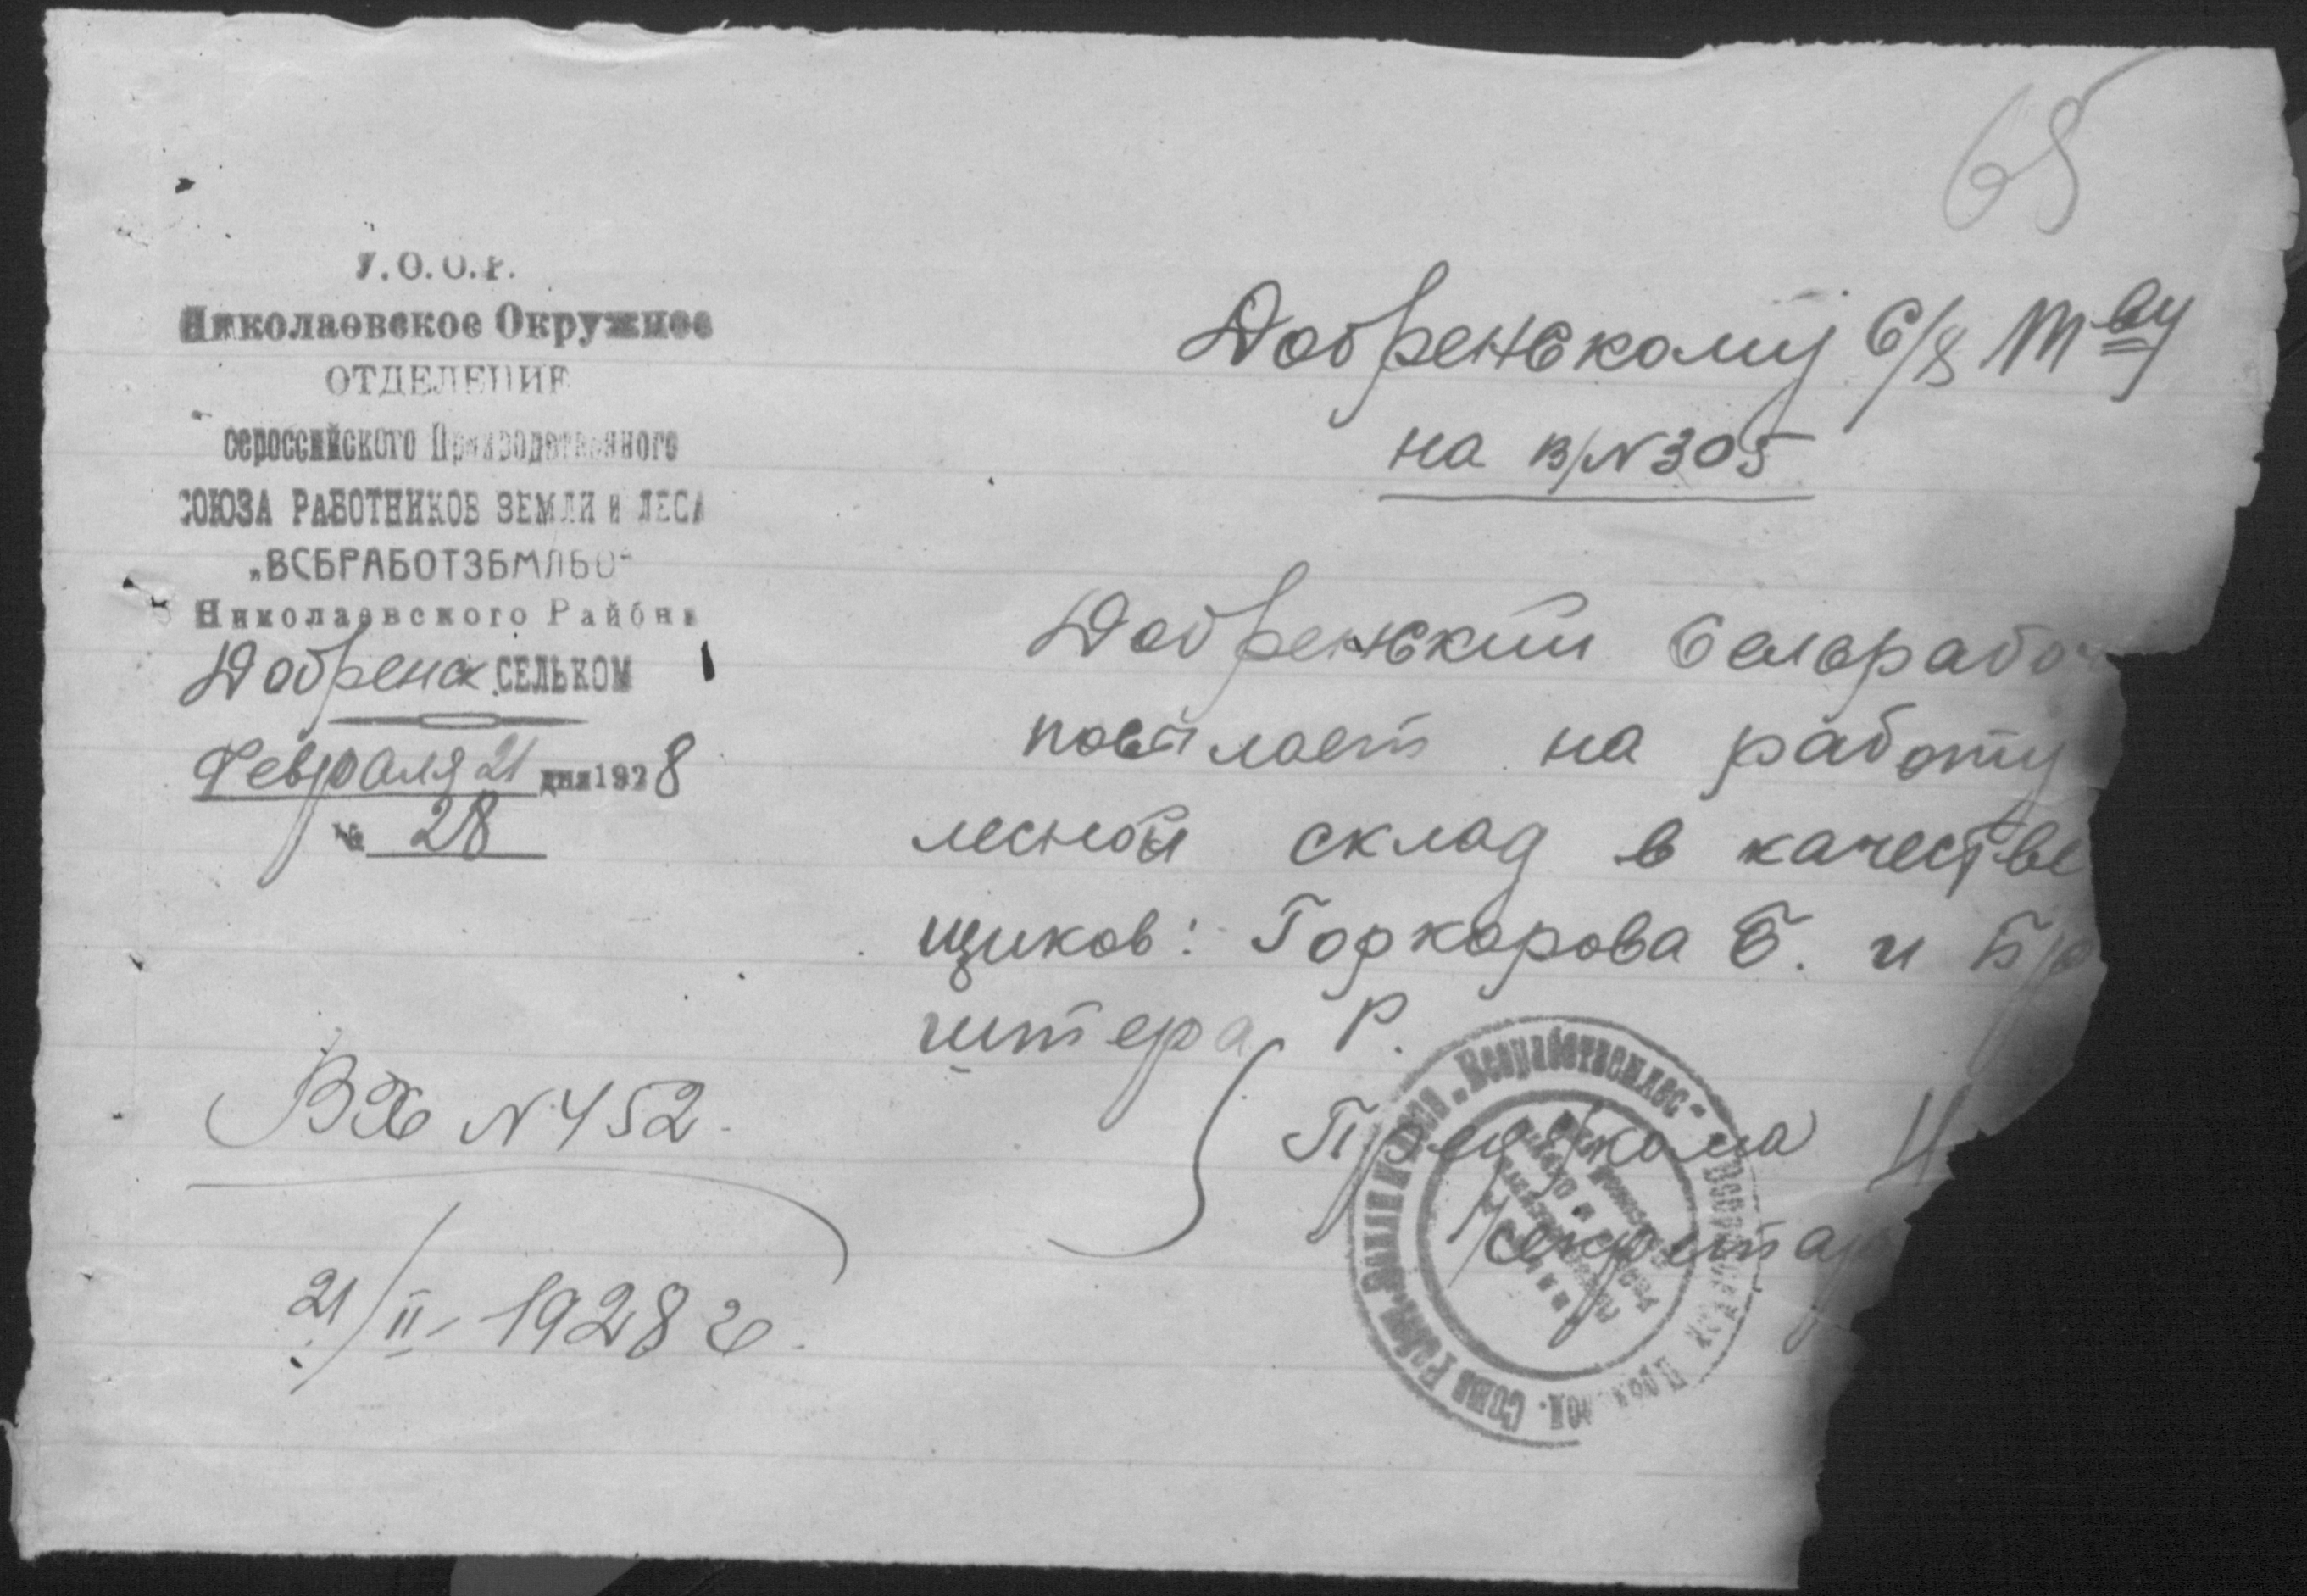 65
У.О.О.Р.
Николаевское Окружное
ОТДЕЛЕНИЕ
сероссийского Производственного
СОЮЗА РАБОТНИКОВ ЗЕМЛИ и ЛЕСА
„ВСЕРАБОТЗЕМЛЕС"
Николаевского Района
Добренск. СЕЛЬКОМ
Февраля 21 дня 1928
№ 28
Добренскому С/Х Т-ву
на В/N305
Добренский Сельрабоч
посылает на работу
лесной склад в качестве
щиков: Горкорова Б. и Бр
штера Р.
Предкома
Секретар
Вх N 452.
21/II-1928 г.
Всеработземлес